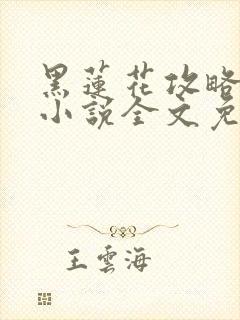 黑蓮花攻略
小說全文免
王雲海